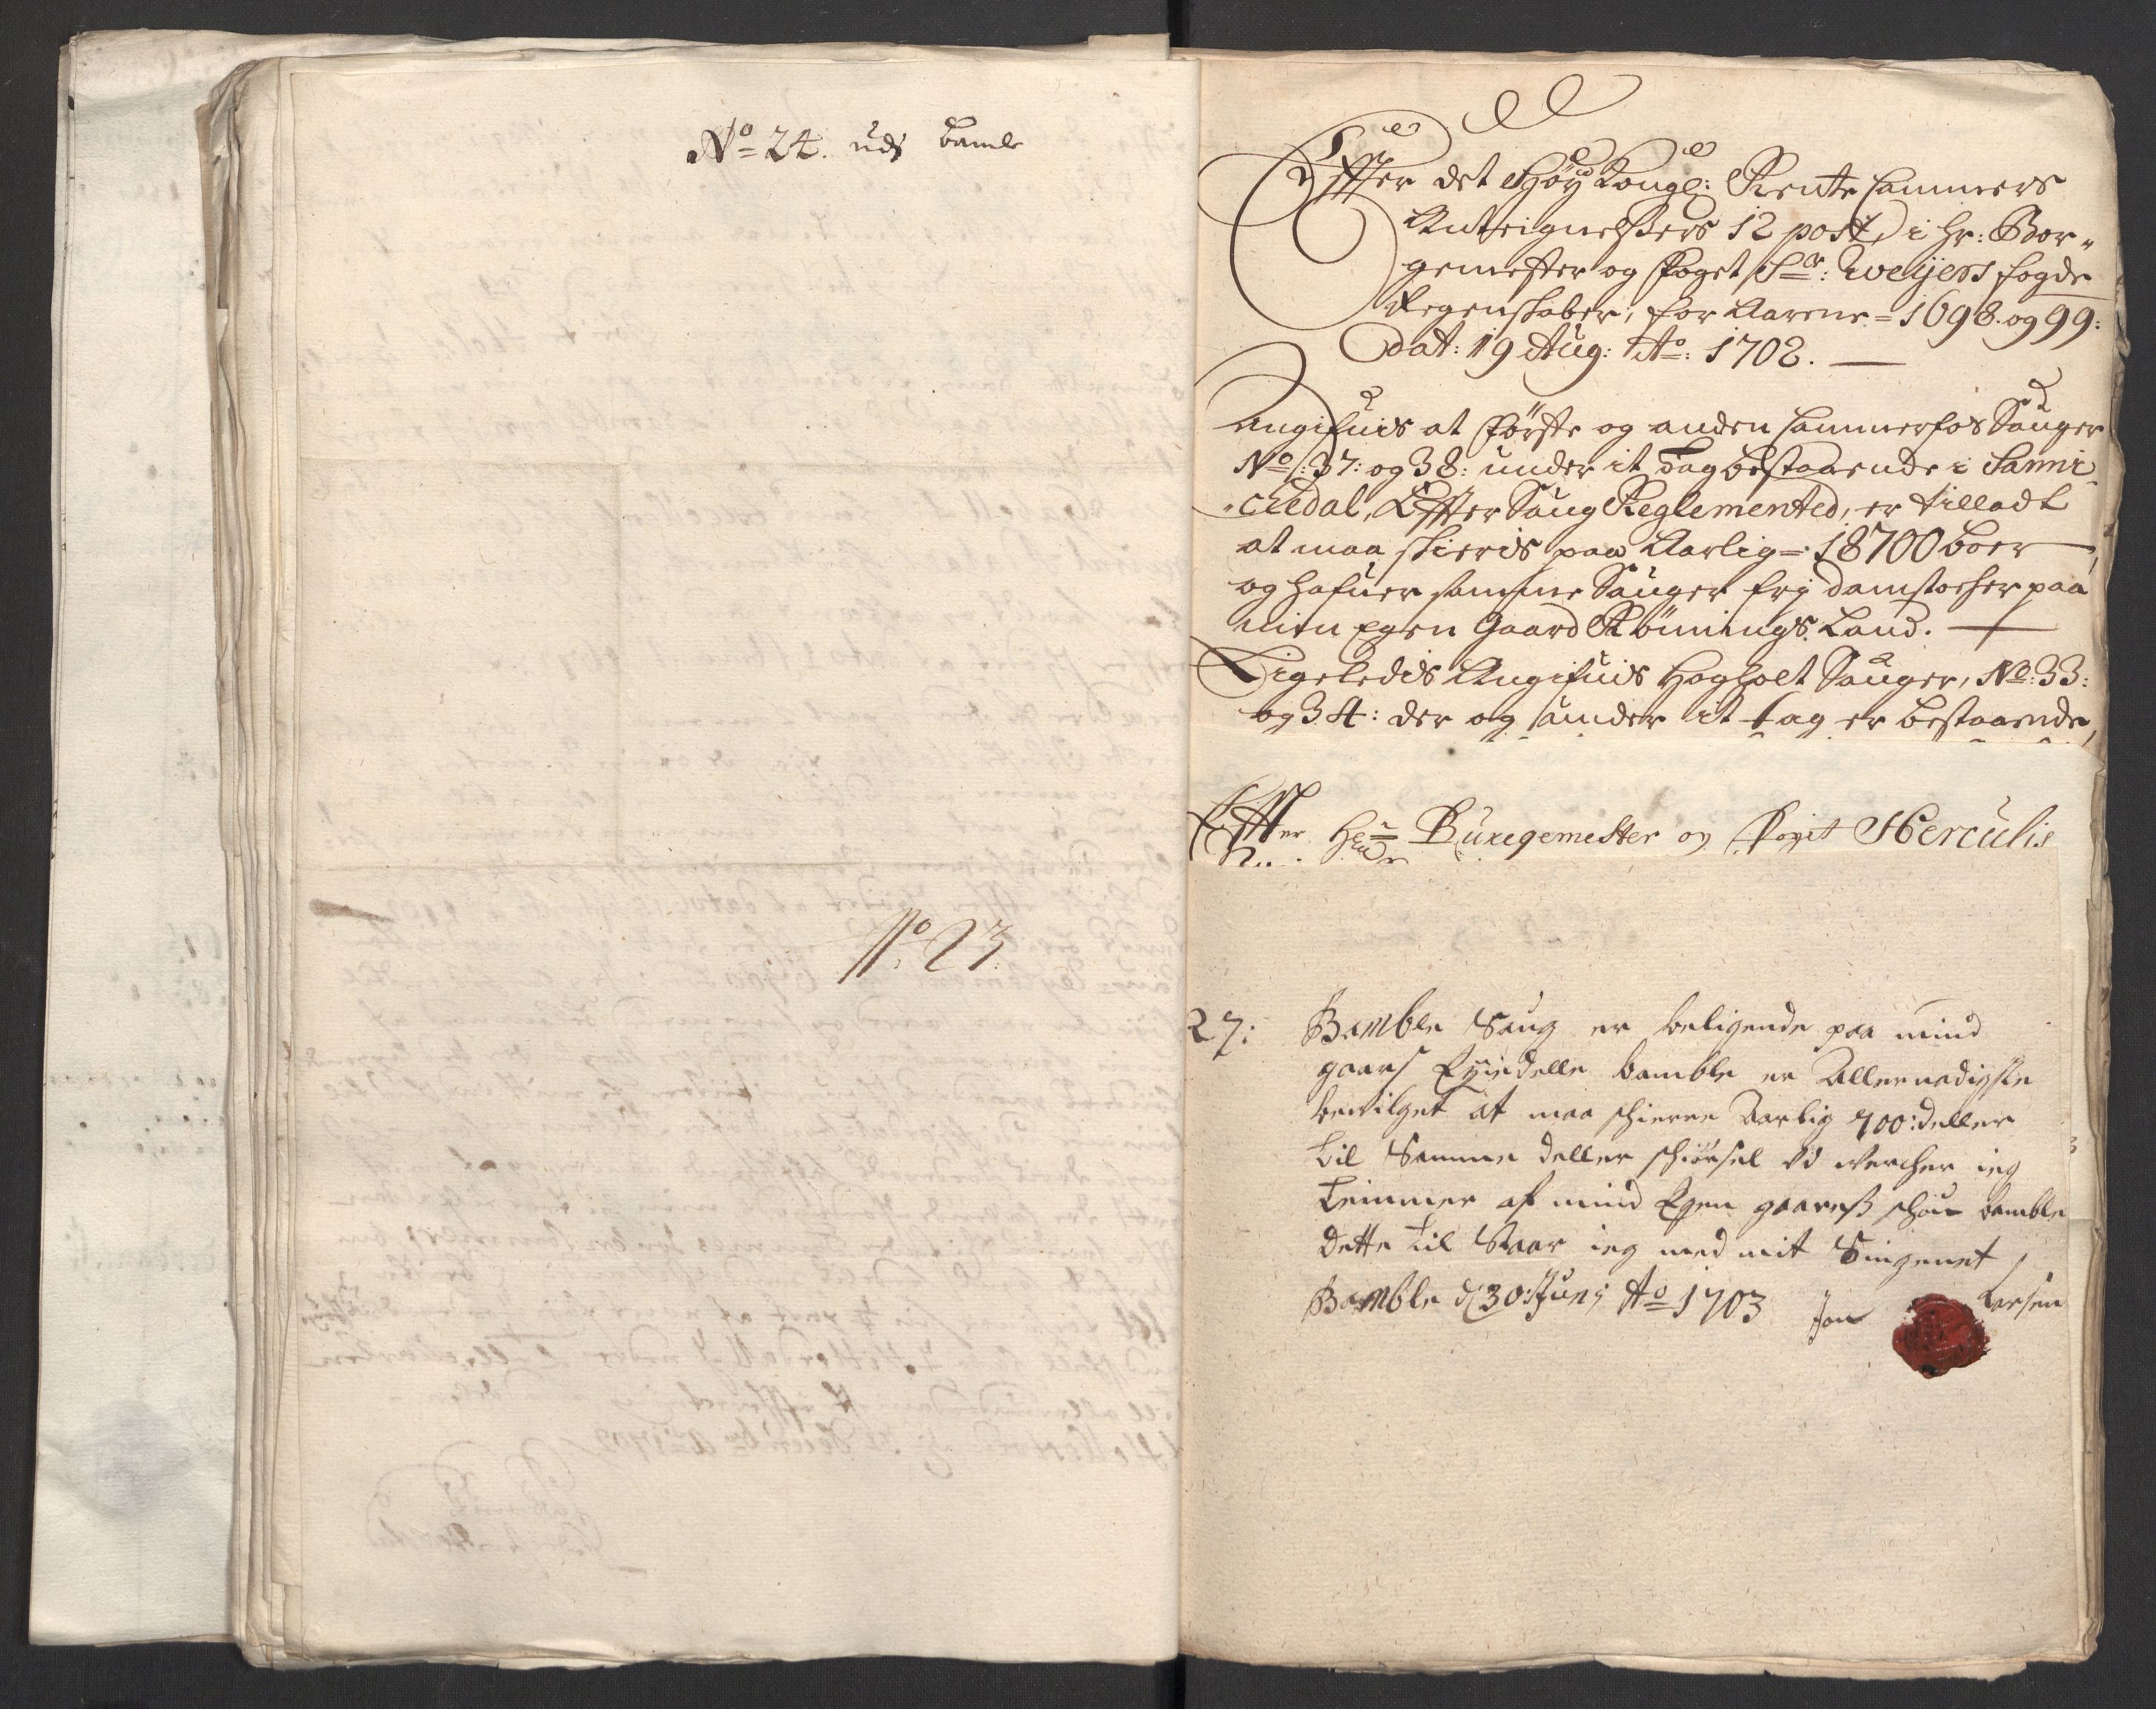 No 24. udj bamle
No 23
Effter det Høÿ Kongl: Rente Cammers
Antteignelßers 12 post, i hr: Bor-
gemester og Foget Sr: Weÿers fogde
Regenskaber, for Aarene = 1698. og 99:
Dat: 19 Aug: Ao: 1702.
Angifuis at Første og anden Cammerfos Sauger
No: 37: og 38: under it Tag bestaaende i Sanni-
-ckedal, Effter Saug Reglemented, er tilladt
at maa skieris paa Aarlig = 18700 boer
og hafuer samme Sauger frj damstocker paa
min Egen Gaard Rønnings Land.
Ligeledis Angifuis Hogholt Sauger, No: 33:
og 34: der og under it tag er bestaaende,
Effter Hr Burgemester og Foget Herculis
27: Bamble Saug er beligende paa mind
gaars Eyiedelle bamble er Allernadigste
bevilget at maa schierre Aarlig 700: deller
til Samme deller schiørsel
teimmer af mind Egen gaarss schou bamble
dette til Svar ieg med mit Singenet
Bamble d 30: Junj Ao 1703 Jon Larsen